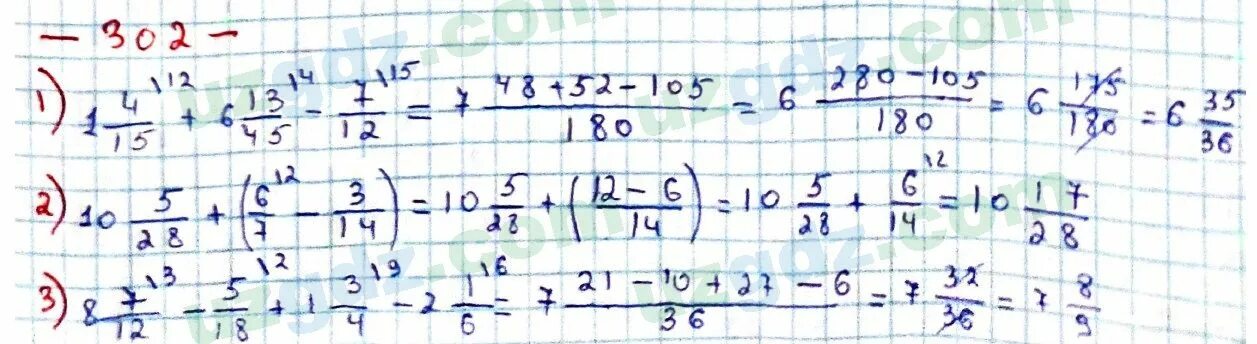 - 302 -
1) 1 4/15 \12 + 6 13/45 \4 - 7/12 \15 = 7 48+52-105/180 = 6 280-105/180 = 6 175/180 = 6 35/36
2) 10 5/28 + (6/7 \2 - 3/14) = 10 5/28 + (12-6/14) = 10 5/28 + 6/14 \2 = 10 17/28
3) 8 7/12 \3 - 5/18 \2 + 1 3/4 \9 - 2 1/6 \6 = 7 21-10+27-6/36 = 7 32/36 = 7 8/9
uzgdz.com